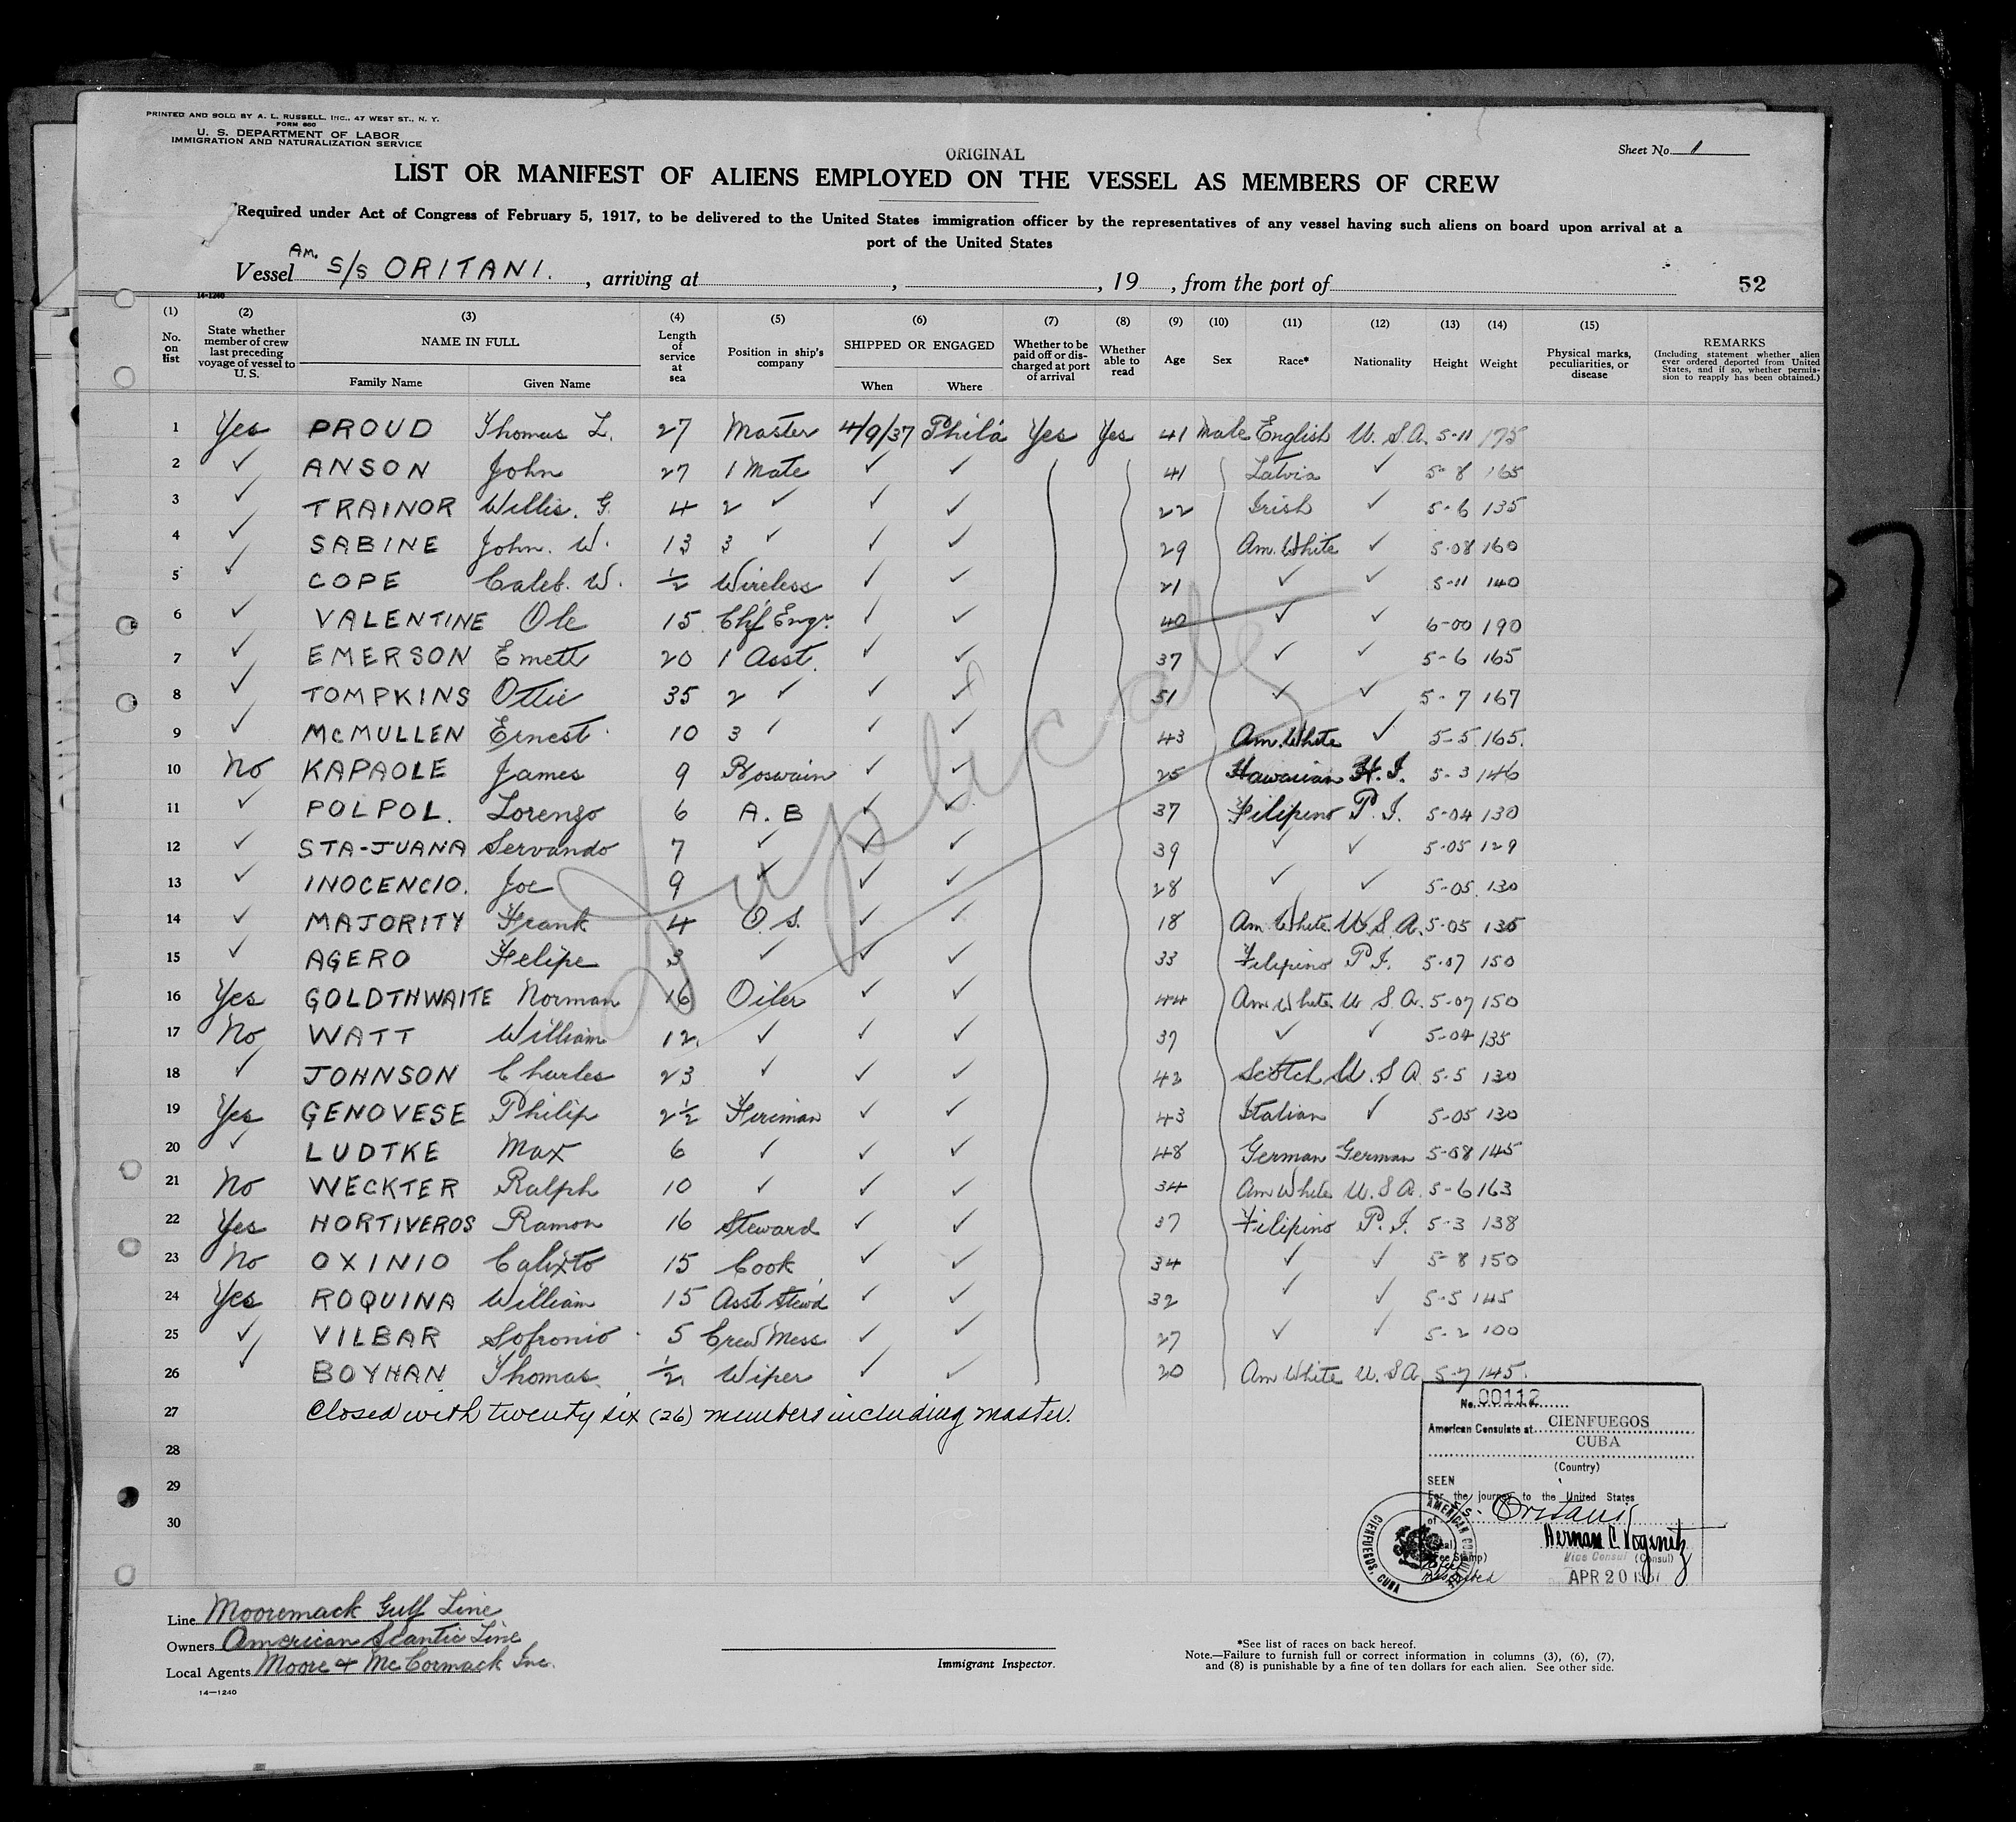 PRINTED AND SOLD BY A. L. RUSSELL, INC., 47 WEST ST., N. Y.
FORM 660
U. S. DEPARTMENT OF LABOR
IMMIGRATION AND NATURALIZATION SERVICE
ORIGINAL
Sheet No. 1
LIST OR MANIFEST OF ALIENS EMPLOYED ON THE VESSEL AS MEMBERS OF CREW
Required under Act of Congress of February 5, 1917, to be delivered to the United States immigration officer by the representatives of any vessel having such aliens on board upon arrival at a
port of the United States
Vessel Am. S/S ORITANI. , arriving at , , 19 , from the port of
52
14-1240
(1) No. on list (2) State whether member of crew last preceding voyage of vessel to U. S. (3) NAME IN FULL Family Name Given Name (4) Length of service at sea (5) Position in ship's company (6) SHIPPED OR ENGAGED When Where (7) Whether to be paid off or discharged at port of arrival (8) Whether able to read (9) Age (10) Sex (11) Race* (12) Nationality (13) Height (14) Weight (15) Physical marks, peculiarities, or disease REMARKS (Including statement whether alien ever ordered deported from United States, and if so, whether permission to reapply has been obtained.)
1 Yes PROUD Thomas L. 27 Master 4/9/37 Phila Yes Yes 41 Male English U. S. A. 5-11 175
2 ✓ ANSON John 27 1 Mate ✓ ✓ 41 Latvia ✓ 5-8 165
3 ✓ TRAINOR Willis. G. 4 2 ✓ ✓ ✓ 22 Irish ✓ 5-6 135
4 ✓ SABINE John. W. 13 3 ✓ ✓ ✓ 29 Am. White ✓ 5-08 160
5 ✓ COPE Caleb. W. ½ Wireless ✓ ✓ 21 ✓ ✓ 5-11 140
6 ✓ VALENTINE Ole 15 Chf Engr. ✓ ✓ 40 ✓ ✓ 6-00 190
7 ✓ EMERSON Emett 20 1 Asst. ✓ ✓ 37 ✓ ✓ 5-6 165
8 ✓ TOMPKINS Ottie 35 2 ✓ ✓ ✓ 51 ✓ ✓ 5-7 167
9 ✓ McMULLEN Ernest 10 3 ✓ ✓ ✓ 43 Am. White ✓ 5-5 165.
10 No KAPAOLE James 9 Boswain ✓ ✓ 25 Hawaiian H. I. 5-3 146
11 ✓ POLPOL. Lorenzo 6 A. B ✓ ✓ 37 Filipino P. I. 5-04 130
12 ✓ STA-JUANA Servando 7 ✓ ✓ ✓ 39 ✓ ✓ 5-05 129
13 ✓ INOCENCIO. Joe 9 ✓ ✓ ✓ 28 ✓ ✓ 5-05 130
14 ✓ MAJORITY Frank 4 O. S. ✓ ✓ 18 Am. White U. S. A. 5-05 135
15 ✓ AGERO Felipe 3 ✓ ✓ ✓ 33 Filipino P. I. 5-07 150
16 Yes GOLDTHWAITE Norman 16 Oiler ✓ ✓ 44 Am White U. S. A. 5-07 150
17 No WATT William 12. ✓ ✓ ✓ 37 ✓ ✓ 5-04 135
18 ✓ JOHNSON Charles 23 ✓ ✓ ✓ 42 Scotch U. S A 5-5 130
19 Yes GENOVESE Philip 2½ Fireman ✓ ✓ 43 Italian ✓ 5-05 130
20 ✓ LUDTKE Max 6 ✓ ✓ ✓ 48 German German 5-08 145
21 No WECKTER Ralph 10 ✓ ✓ ✓ 34 Am White U. S A. 5-6 163
22 Yes HORTIVEROS Ramon 16 Steward ✓ ✓ 37 Filipino P. I. 5-3 138
23 No OXINIO Calixto 15 Cook ✓ ✓ 34 ✓ ✓ 5-8 150
24 Yes ROQUINA William 15 Asst Stewd ✓ ✓ 32 ✓ ✓ 5-5 145
25 ✓ VILBAR Sofronio 5 Crew Mess ✓ ✓ 27 ✓ ✓ 5-2 100
26 ✓ BOYHAN Thomas. ½ Wiper ✓ ✓ 20 Am White U. S A 5-7 145.
27 Closed with twenty six (26) members including master.
28
29
30
Duplicate
No. 00112
American Consulate at CIENFUEGOS
CUBA
(Country)
SEEN
For the journey to the United States
of S. S. Oritani
(Seal)
(Fee Stamp)
Vice Consul (Consul)
APR 20 1937
AMERICAN CONSULATE CIENFUEGOS, CUBA
Line Mooremack Gulf Line
Owners American Scantic Line
Local Agents Moore & McCormack Inc.
14—1240
Immigrant Inspector.
*See list of races on back hereof.
Note.—Failure to furnish full or correct information in columns (3), (6), (7),
and (8) is punishable by a fine of ten dollars for each alien. See other side.